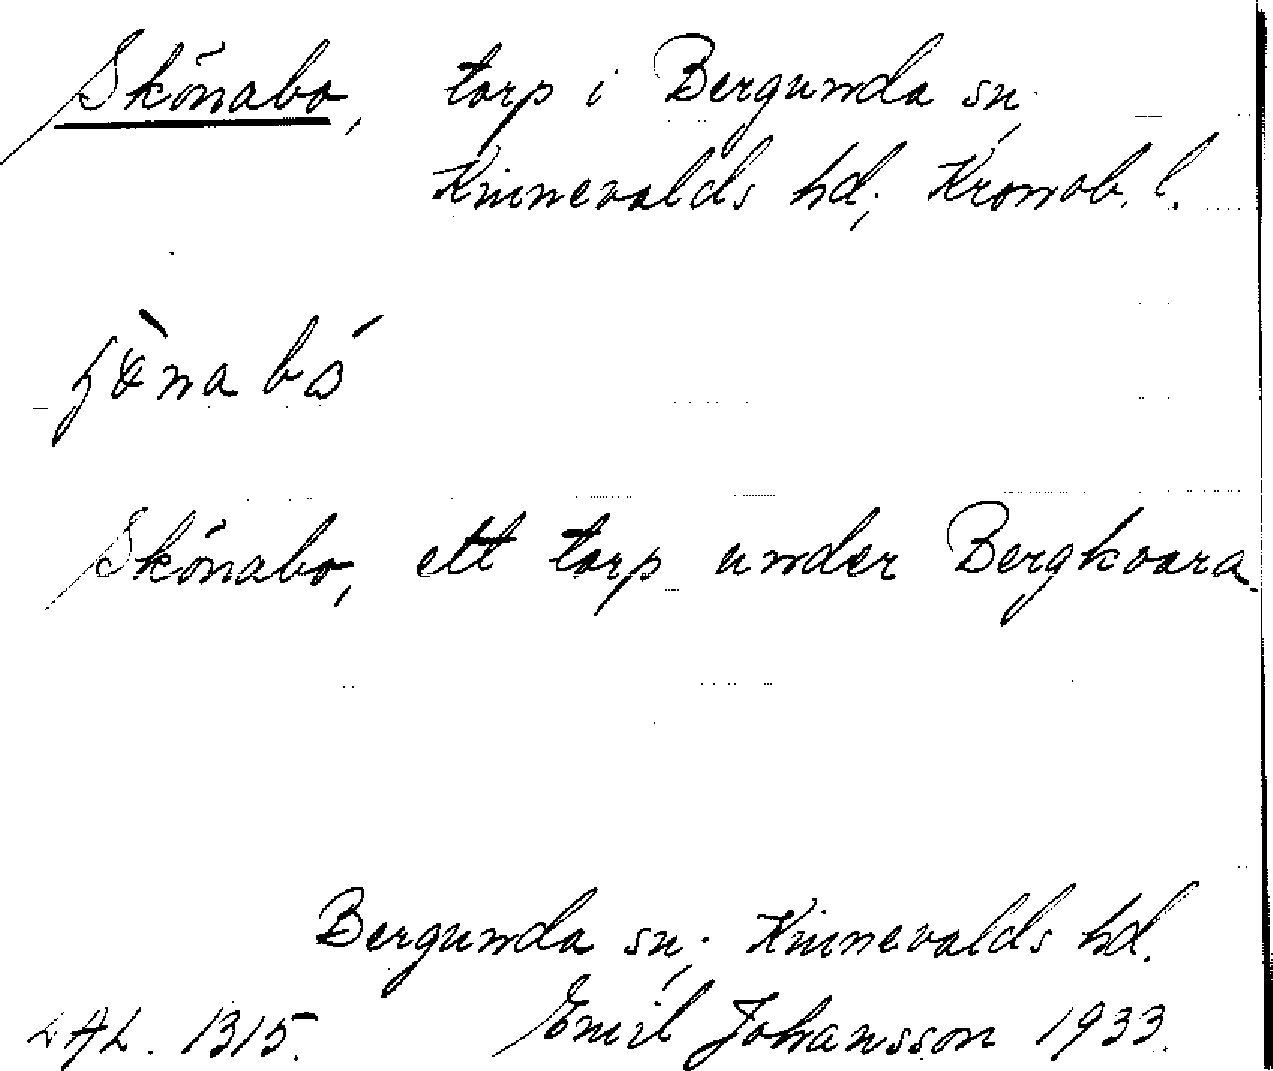 Skönabo, torp i Bergunda sn,
Kinnevalds hd, Kronob. l.
Skönabo, ett torp under Bergkvara.
Bergunda sn, Kinnevalds hd.
LAL. 1315. Emil Johansson 1933.